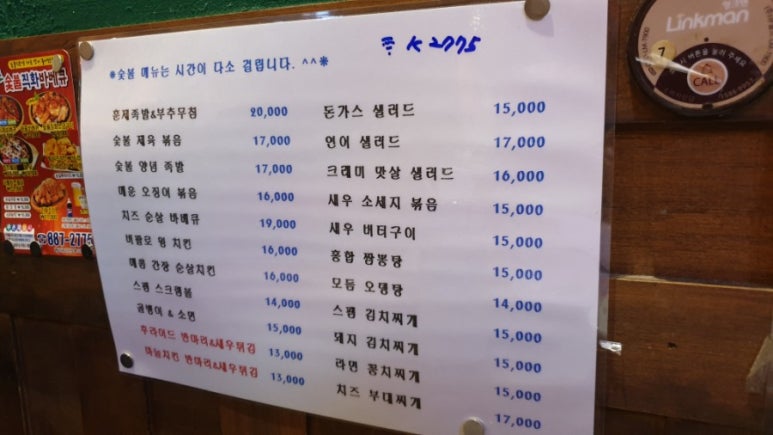 *숯불 메뉴는 시간이 다소 걸립니다. ^^*
K 2775
훈제족발&부추무침 20,000
숯불 제육 볶음 17,000
숯불 양념 족발 17,000
매운 오징어 볶음 16,000
치즈 순살 바베큐 19,000
버팔로 윙 치킨 16,000
매콤 간장 순살치킨 16,000
스팸 스크램블 14,000
골뱅이 & 소면 15,000
후라이드 반마리&새우튀김 13,000
마늘치킨 반마리&새우튀김 13,000
돈가스 샐러드 15,000
연어 샐러드 17,000
크레미 맛살 샐러드 16,000
새우 소세지 볶음 15,000
새우 버터구이 15,000
홍합 짬뽕탕 15,000
모듬 오뎅탕 14,000
스팸 김치찌개 15,000
돼지 김치찌개 15,000
라면 꽁치찌개 15,000
치즈 부대찌개 17,000
숯불직화바베큐
887-2775
Linkman
7
버튼을 눌러 주세요
CALL